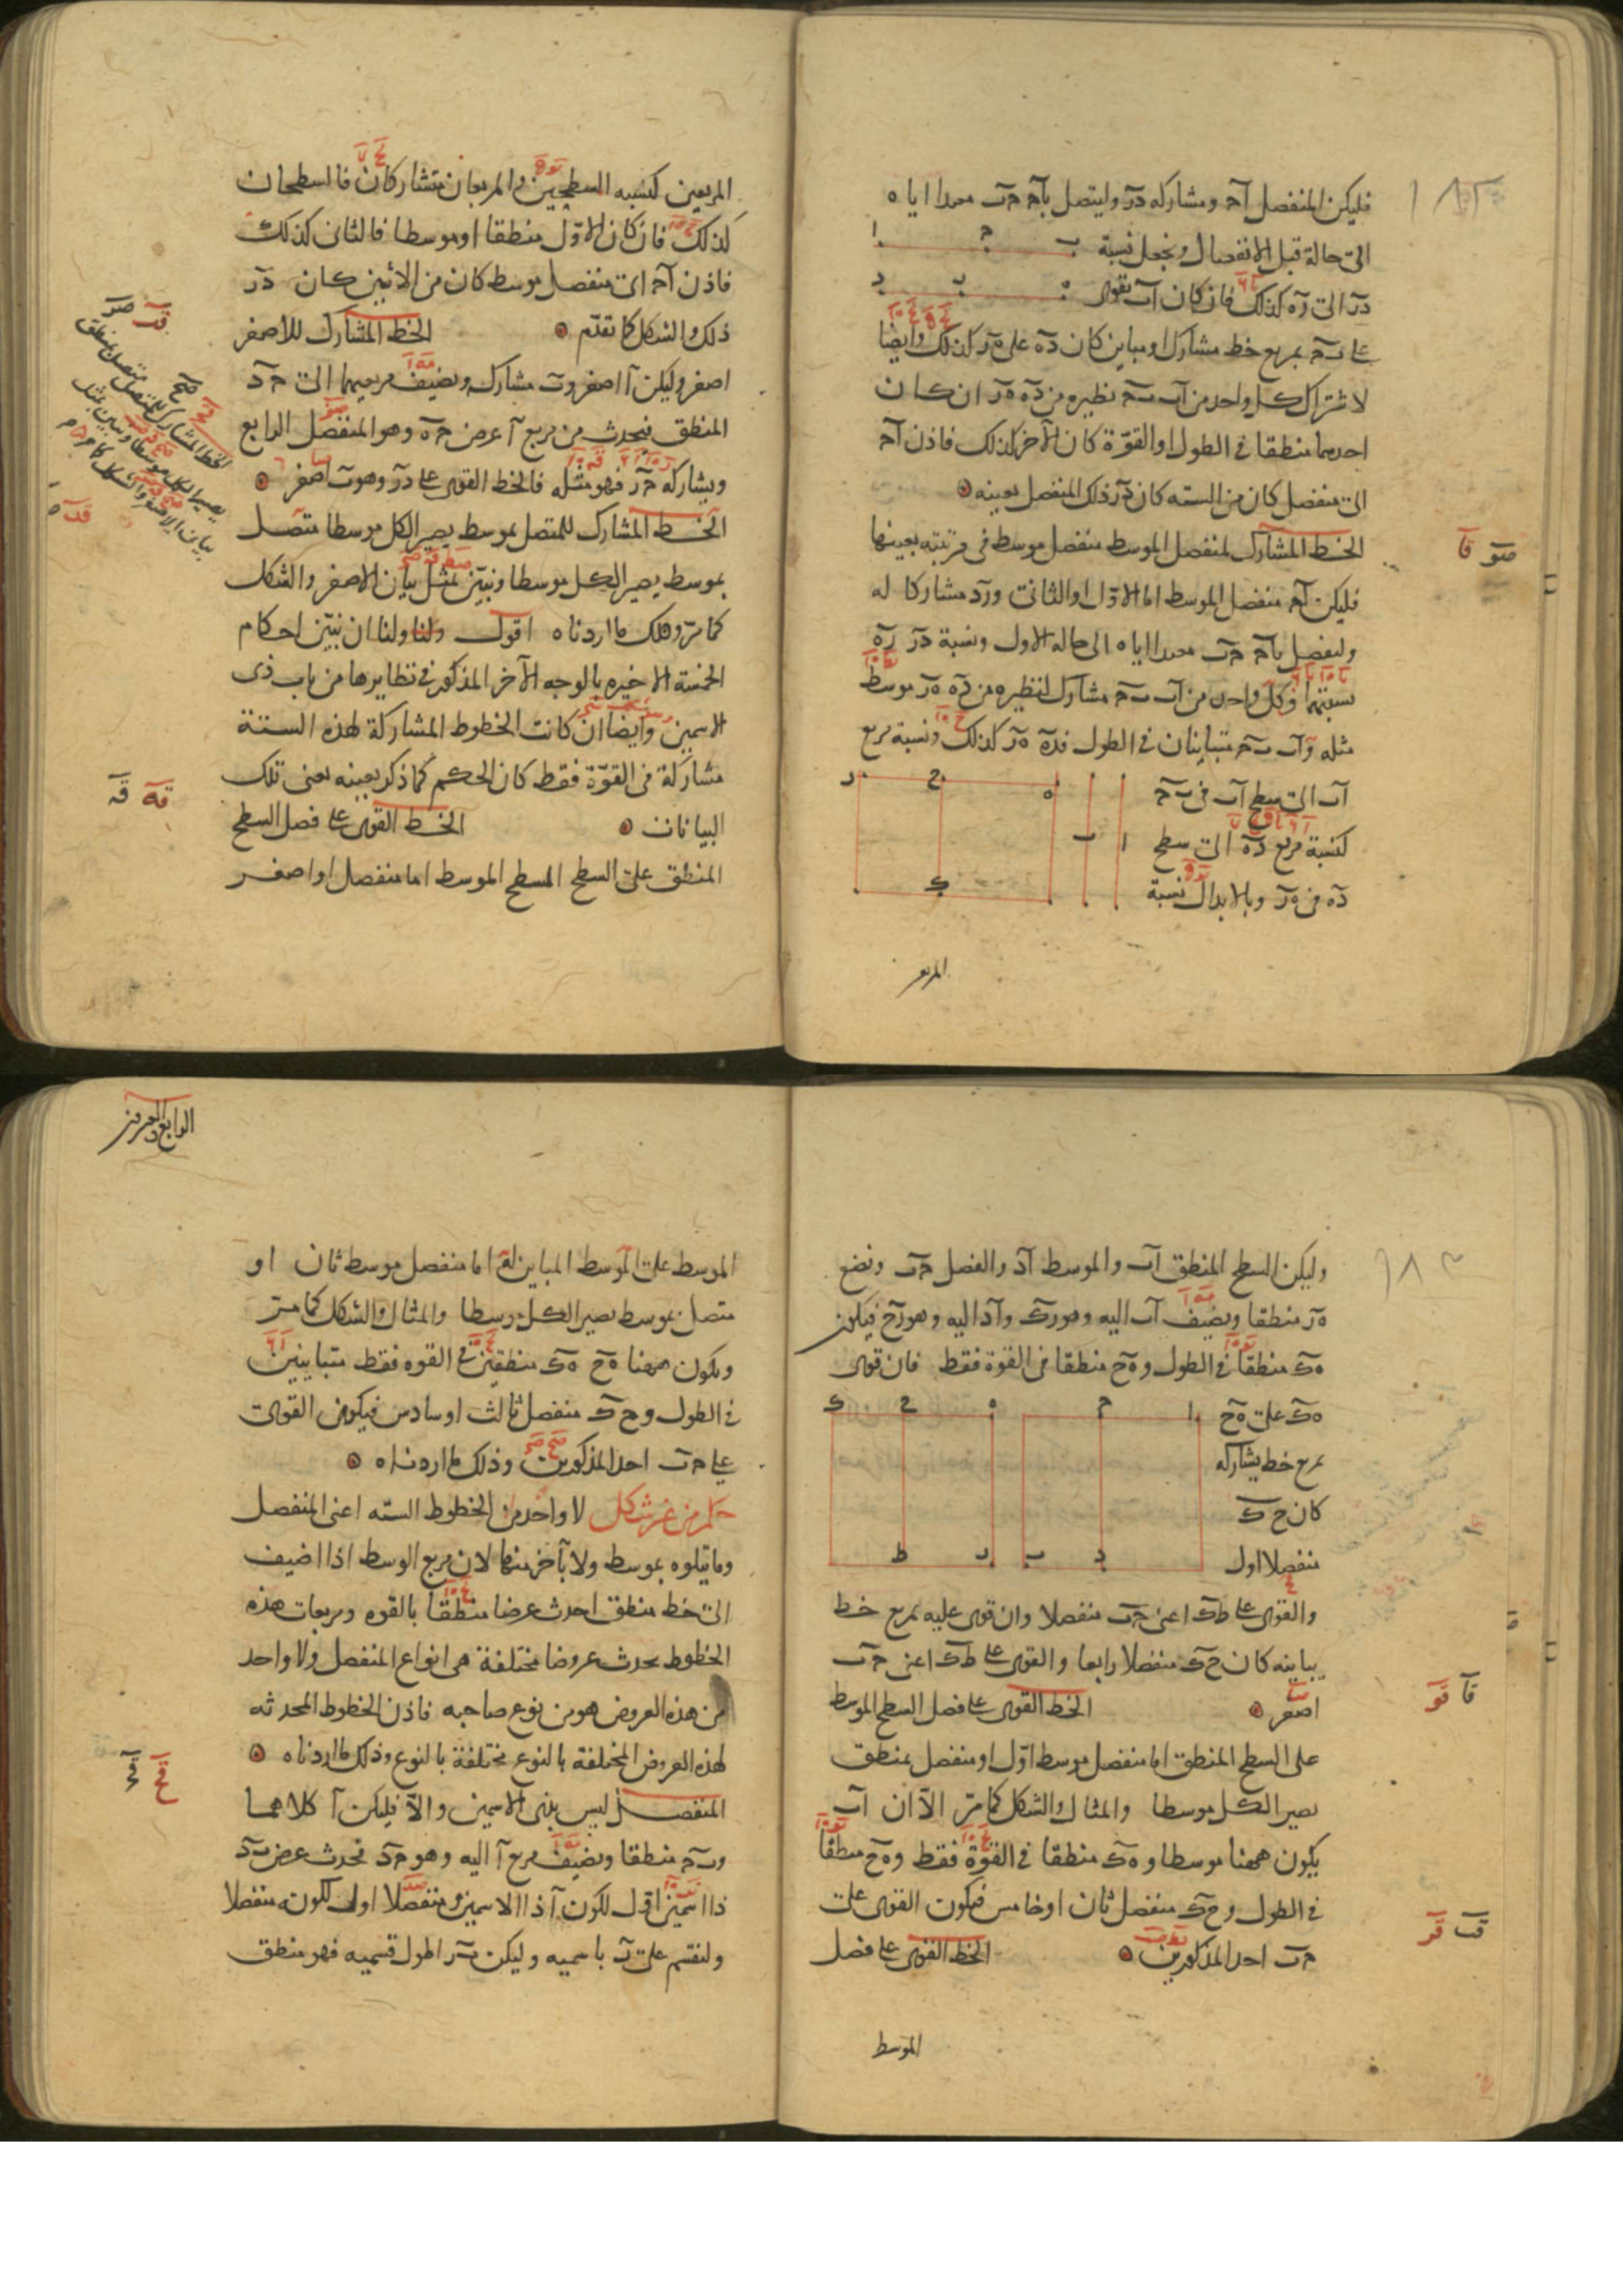 ١٨٢
فليكن المنفصل آج ومشاركه دز وليتصل بآج ج ب معيدا اياه
الى حاله قبل الانفصال ونجعل نسبة
ا ج ب
دز الى زه كذلك فان كان آب يقوى
د ه
على ب ج بمربع خط مشارك او مباين كان ده على ه ز كذلك وايضا
لاشتراك كل واحد من آب ب ج نظيره من ده ه ز ان كان
احدهما منطقا فى الطول او القوة كان الآخر كذلك فاذن آج
اى منفصل كان من الستة كان دز ذلك المنفصل بعينه
الخط المشارك لمنفصل الموسط منفصل موسط فى مرتبته بعينها
صو قا
فليكن آج منفصل الموسط اما الاول او الثانى و زد مشاركا له
وليفصل بآج ج ب معيدا اياه الى حاله الاول ونسبة دز زه
نسبتهما فكل واحد من آب ب ج مشارك لنظيره من ده ه ز موسط
مثله وآب ب ج متباينان فى الطول فده ه ز كذلك ونسبة مربع
آب الى سطح آب فى ب ج
كنسبة مربع ده الى سطح
ده فى ه ز وبالابدال نسبة
ا ب ه ح ك
المربعين
المربعين كنسبة السطحين والمربعان متشاركان فالسطحان
كذلك فان كان الاول منطقا او موسطا فالثانى كذلك
فاذن آج اى منفصل موسط كان من الاثنين كان دز
ذلك والشكل كما تقدم الخط المشارك للاصغر
اصغر وليكن آ اصغر و ب مشاركه ونضيف مربعيهما الى ج د
المنطق فيحدث من مربع آ عرض ج ه وهو المنفصل الرابع
ويشاركه ج ز فهو مثله فالخط القوى على دز وهو ب اصغر
الخط المشارك للمتصل بموسط يصير الكل موسطا متصل
بموسط يصير الكل موسطا ونبين بمثل بيان الاصغر والشكل
كما مر وذلك ما اردناه اقول ولنا ولنا ان نبين احكام
الخمسة الاخيرة بالوجه الآخر المذكور فى نظايرها من باب ذى
الاسمين وايضا ان كانت الخطوط المشاركة لهذه الستة
مشاركة فى القوة فقط كان الحكم كما ذكر بعينه يعنى تلك
البيانات الخط القوى على فصل السطح
المنطق على السطح المسطح الموسط اما منفصل او اصغر
صح
الخط المشارك للمتصل بمنطق
يصير الكل موسطا ونبين بمثل
بيان الاصغر والشكل كما مر
١٨٣
وليكن السطح المنطق آب والموسط آد والفصل ج ب ونضع
ه ز منطقا ونضيف آب اليه وهو ز ك وآد اليه وهو ز ح فيكون
ه ك منطقا فى الطول و ه ح منطقا فى القوة فقط فان قوى
ه ك على ه ح
بمربع خط يشاركه
كان ح ك
منفصلا اول
ا ج ه ح ك
د ب ز ط
والقوى على ط ك اعنى ج ب منفصلا وان قوى عليه بمربع خط
يباينه كان ح ك منفصلا رابعا والقوى على ط ك اعنى ج ب
اصغر الخط القوى على فصل السطح الموسط
على السطح المنطق اما منفصل موسط اول او متصل بمنطق
يصير الكل موسطا والمثال والشكل كما مر الا ان آب
يكون ههنا موسطا و ه ك منطقا فى القوة فقط و ه ح منطقا
فى الطول و ح ك منفصل ثان او خامس فيكون القوى على
ج ب احد المذكورين الخط القوى على فصل
الموسط
الرابع والعشرون
الموسط على الموسط المباين له اما منفصل موسط ثان او
متصل بموسط يصير الكل موسطا والمثال والشكل كما مر
ويكون ههنا ه ح ه ك منطقين فى القوة فقط متباينين
فى الطول و ح ك منفصل ثالث او سادس فيكون القوى
على ج ب احد المذكورين وذلك ما اردناه
حكم من غير شكل لا واحد من الخطوط الستة اعنى المنفصل
وما يتلوه بموسط ولا بآخر منها لان مربع الموسط اذا اضيف
الى خط منطق احدث عرضا منطقا بالقوة ومربعات هذه
الخطوط يحدث عروضا مختلفة هى انواع المنفصل ولا واحد
من هذه العروض هو من نوع صاحبه فاذن الخطوط المحدثة
لهذه العروض المختلفة بالنوع مختلفة بالنوع وذلك ما اردناه
المنفصل ليس بذى الاسمين والا فليكن آ كلاهما
و ب ج منطقا ونضيف مربع آ اليه وهو ج د فحدث عرض ب د
ذا اسمين اول لكون آ ذا الاسمين ومنفصلا اول لكونه منفصلا
ولنقسم على ز باسميه وليكن ب ز اطول قسميه فهو منطق